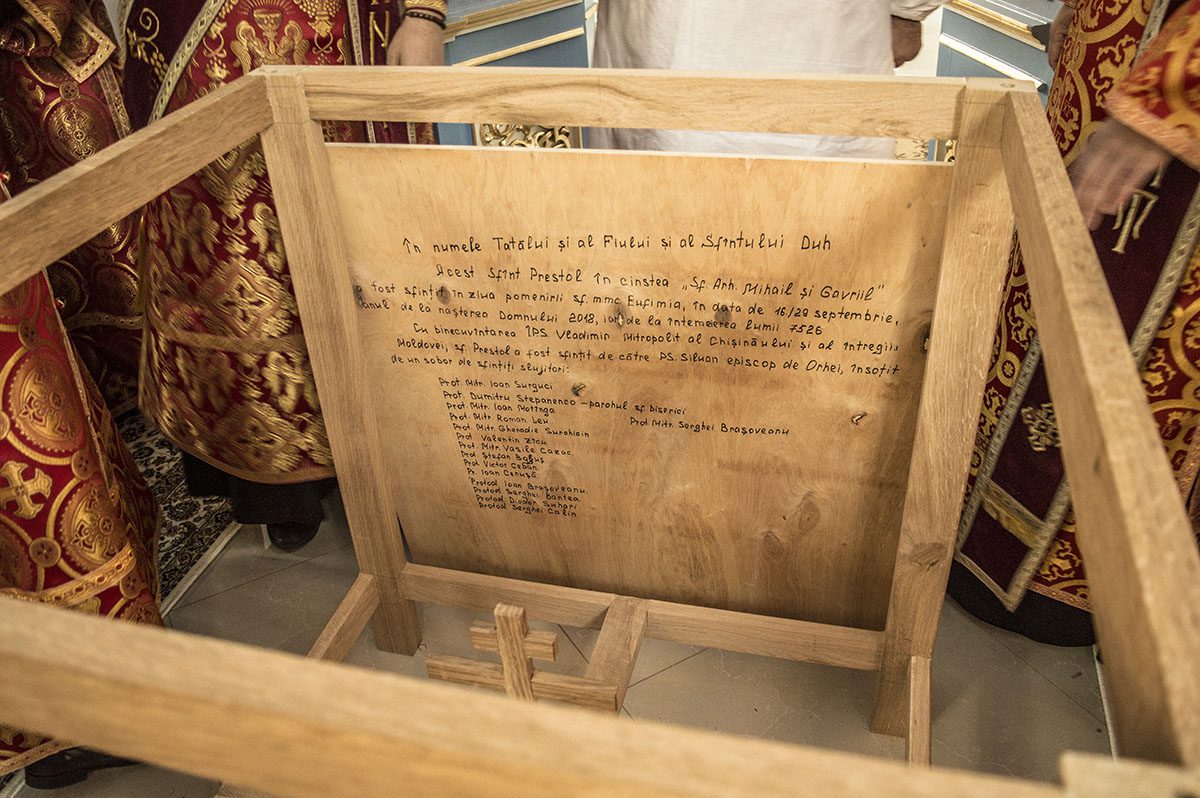 În numele Tatălui și al Fiului și al Sfîntului Duh
Acest Sfînt Prestol în cinstea „Sf. Arh. Mihail și Gavriil"
a fost sfințit în ziua pomenirii sf. m.mc. Eufimia, în data de 16/29 septembrie,
anul de la nașterea Domnului 2018, iar de la întemeierea lumii 7526
Cu binecuvîntarea ÎPS. Vladimir Mitropolit al Chișinăului și al întregii
Moldovei, sf. Prestol a fost sfințit de către PS. Siluan episcop de Orhei, însoțit
de un sobor de sfințiți slujitori:
Prot. Mitr. Ioan Surguci
Prot. Dumitru Stepanenco – parohul sf. biserici
Prot. Mitr. Ioan
Prot. Mitr. Roman Leu
Prot. Mitr. Serghei Brașoveanu
Prot. Mitr. Ghenadie
Prot. Valentin
Prot. Mitr. Vasile
Prot. Ștefan
Prot. Victor Ceban
Pr. Ioan Cenușă
Protod. Ioan Brașoveanu
Protod. Serghei Bantea
Protod. Diodor Suhari
Protod. Serghei Calin